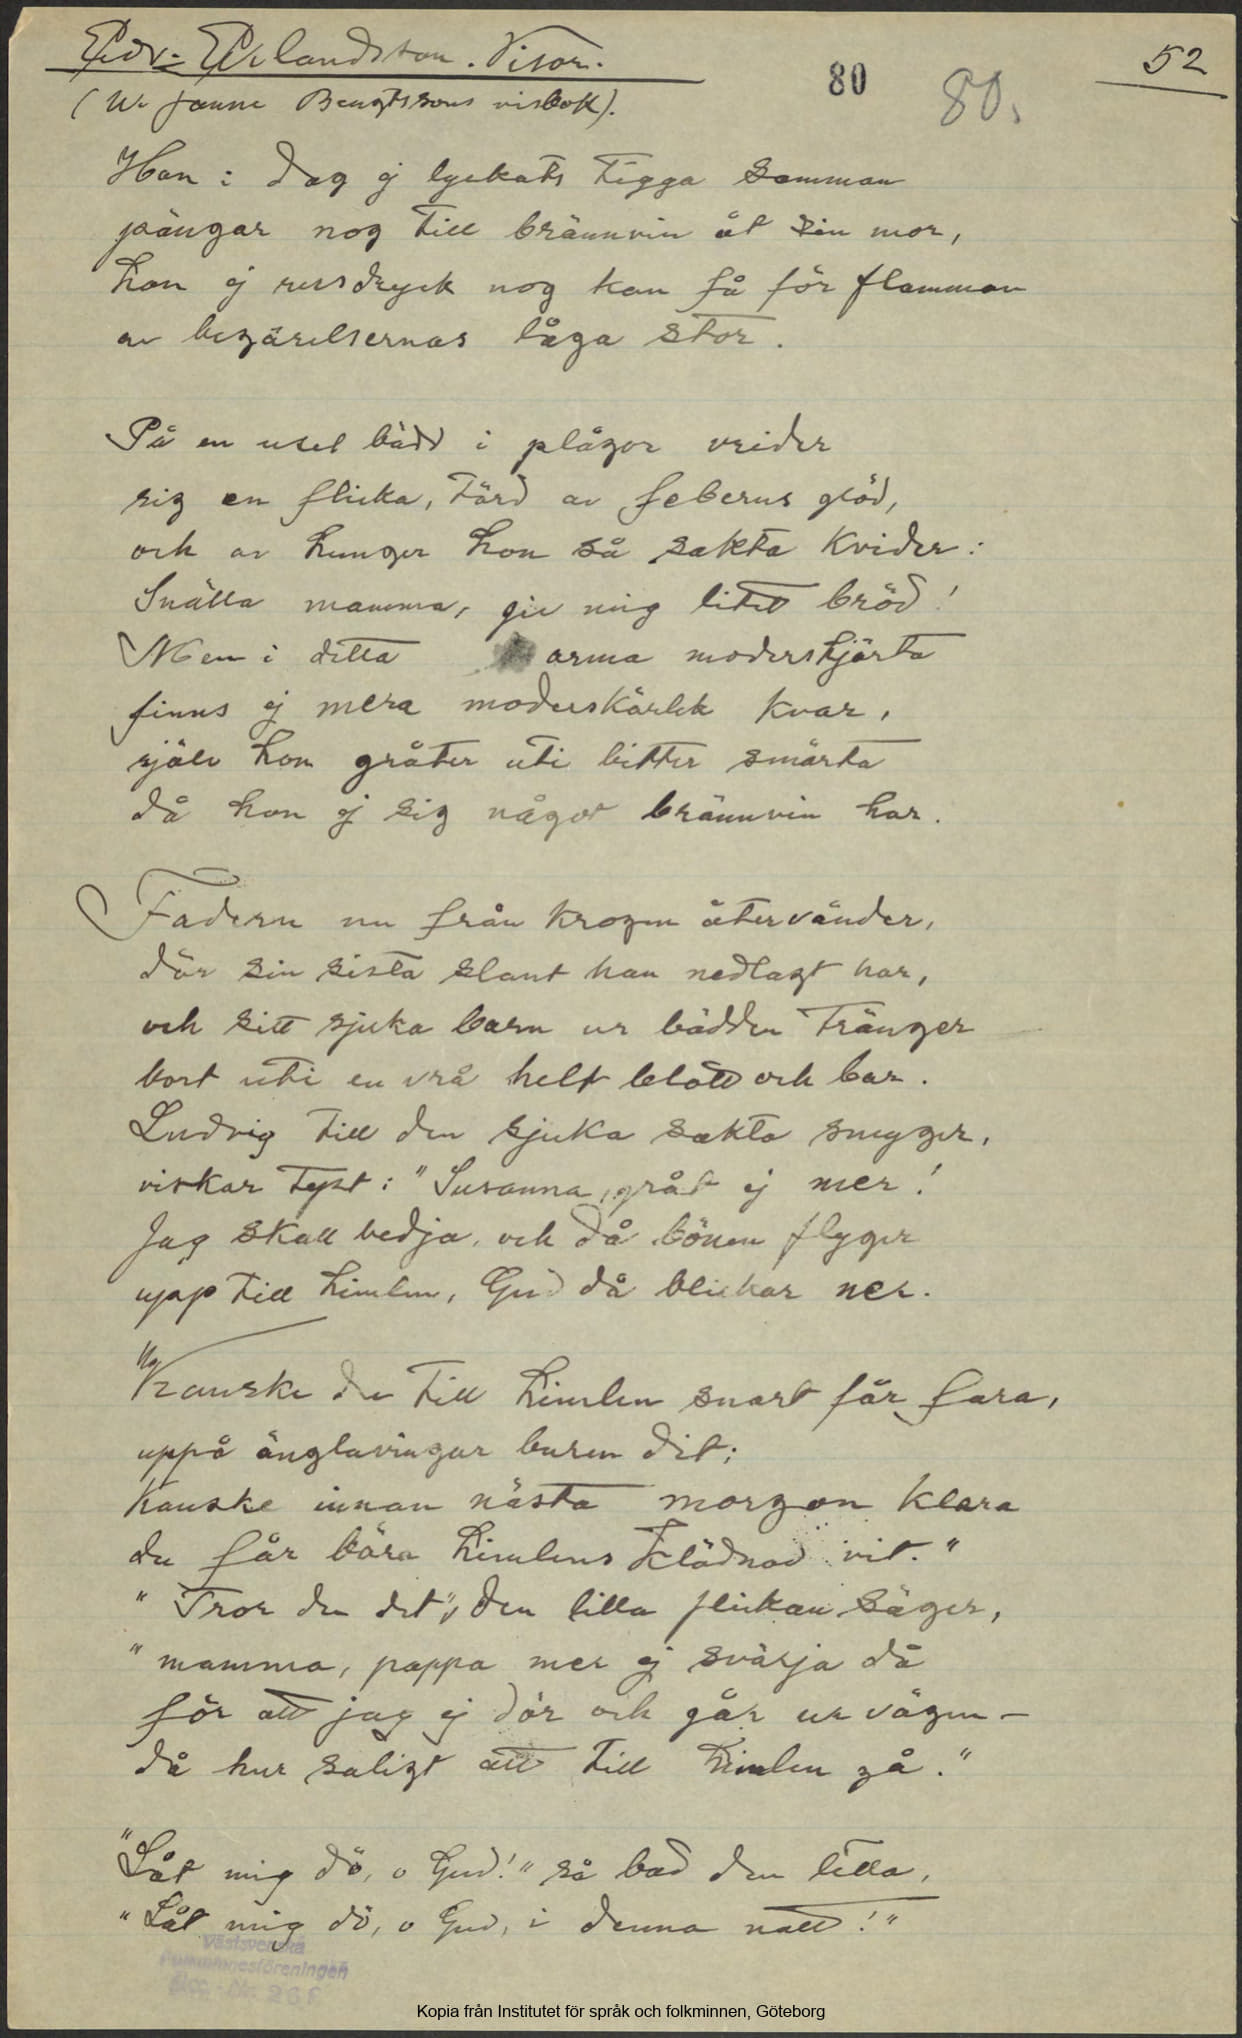 Edv. Erlandsson. Visor.
52
80
80.
(Ur Janne Bengtssons visbok).
Han i dag ej lyckats tigga samman
pängar nog till brännvin åt sin mor,
hon ej rusdryck nog kan få för flamman
av begärelsernas låga stor.
På en usel bädd i plågor vrider
sig en flicka, tärd av feberns glöd,
och av hunger hon så sakta kvider:
Snälla mamma, giv mig litet bröd!
Men i detta arma modershjärta
finns ej mera moderskärlek kvar,
själv hon gråter uti bitter smärta
då hon ej sig något brännvin har.
Fadern nu från krogen återvänder,
där sin sista slant han nedlagt har,
och sitt sjuka barn ur bädden tränger
bort uti en vrå helt blott och bar.
Ludvig till den sjuka sakta smyger,
viskar tyst: "Susanna, gråt ej mer!
Jag skall bedja, och då bönen flyger
upp till himlen, Gud då blickar ner.
"Kanske du till himlen snart får fara,
uppå änglavingar buren dit;
kanske innan nästa morgon klara
du får bära himlens klädnad vit."
"Tror du det", den lilla flickan säger,
"mamma, pappa mer ej svärja då
för att jag ej dör och går ur vägen –
då hur saligt att till himlen gå."
"Låt mig dö, o Gud!" så bad den lilla,
"Låt mig dö, o Gud, i denna natt!"
Västsvenska
Folkminnesföreningen
Kopia från Institutet för språk och folkminnen, Göteborg